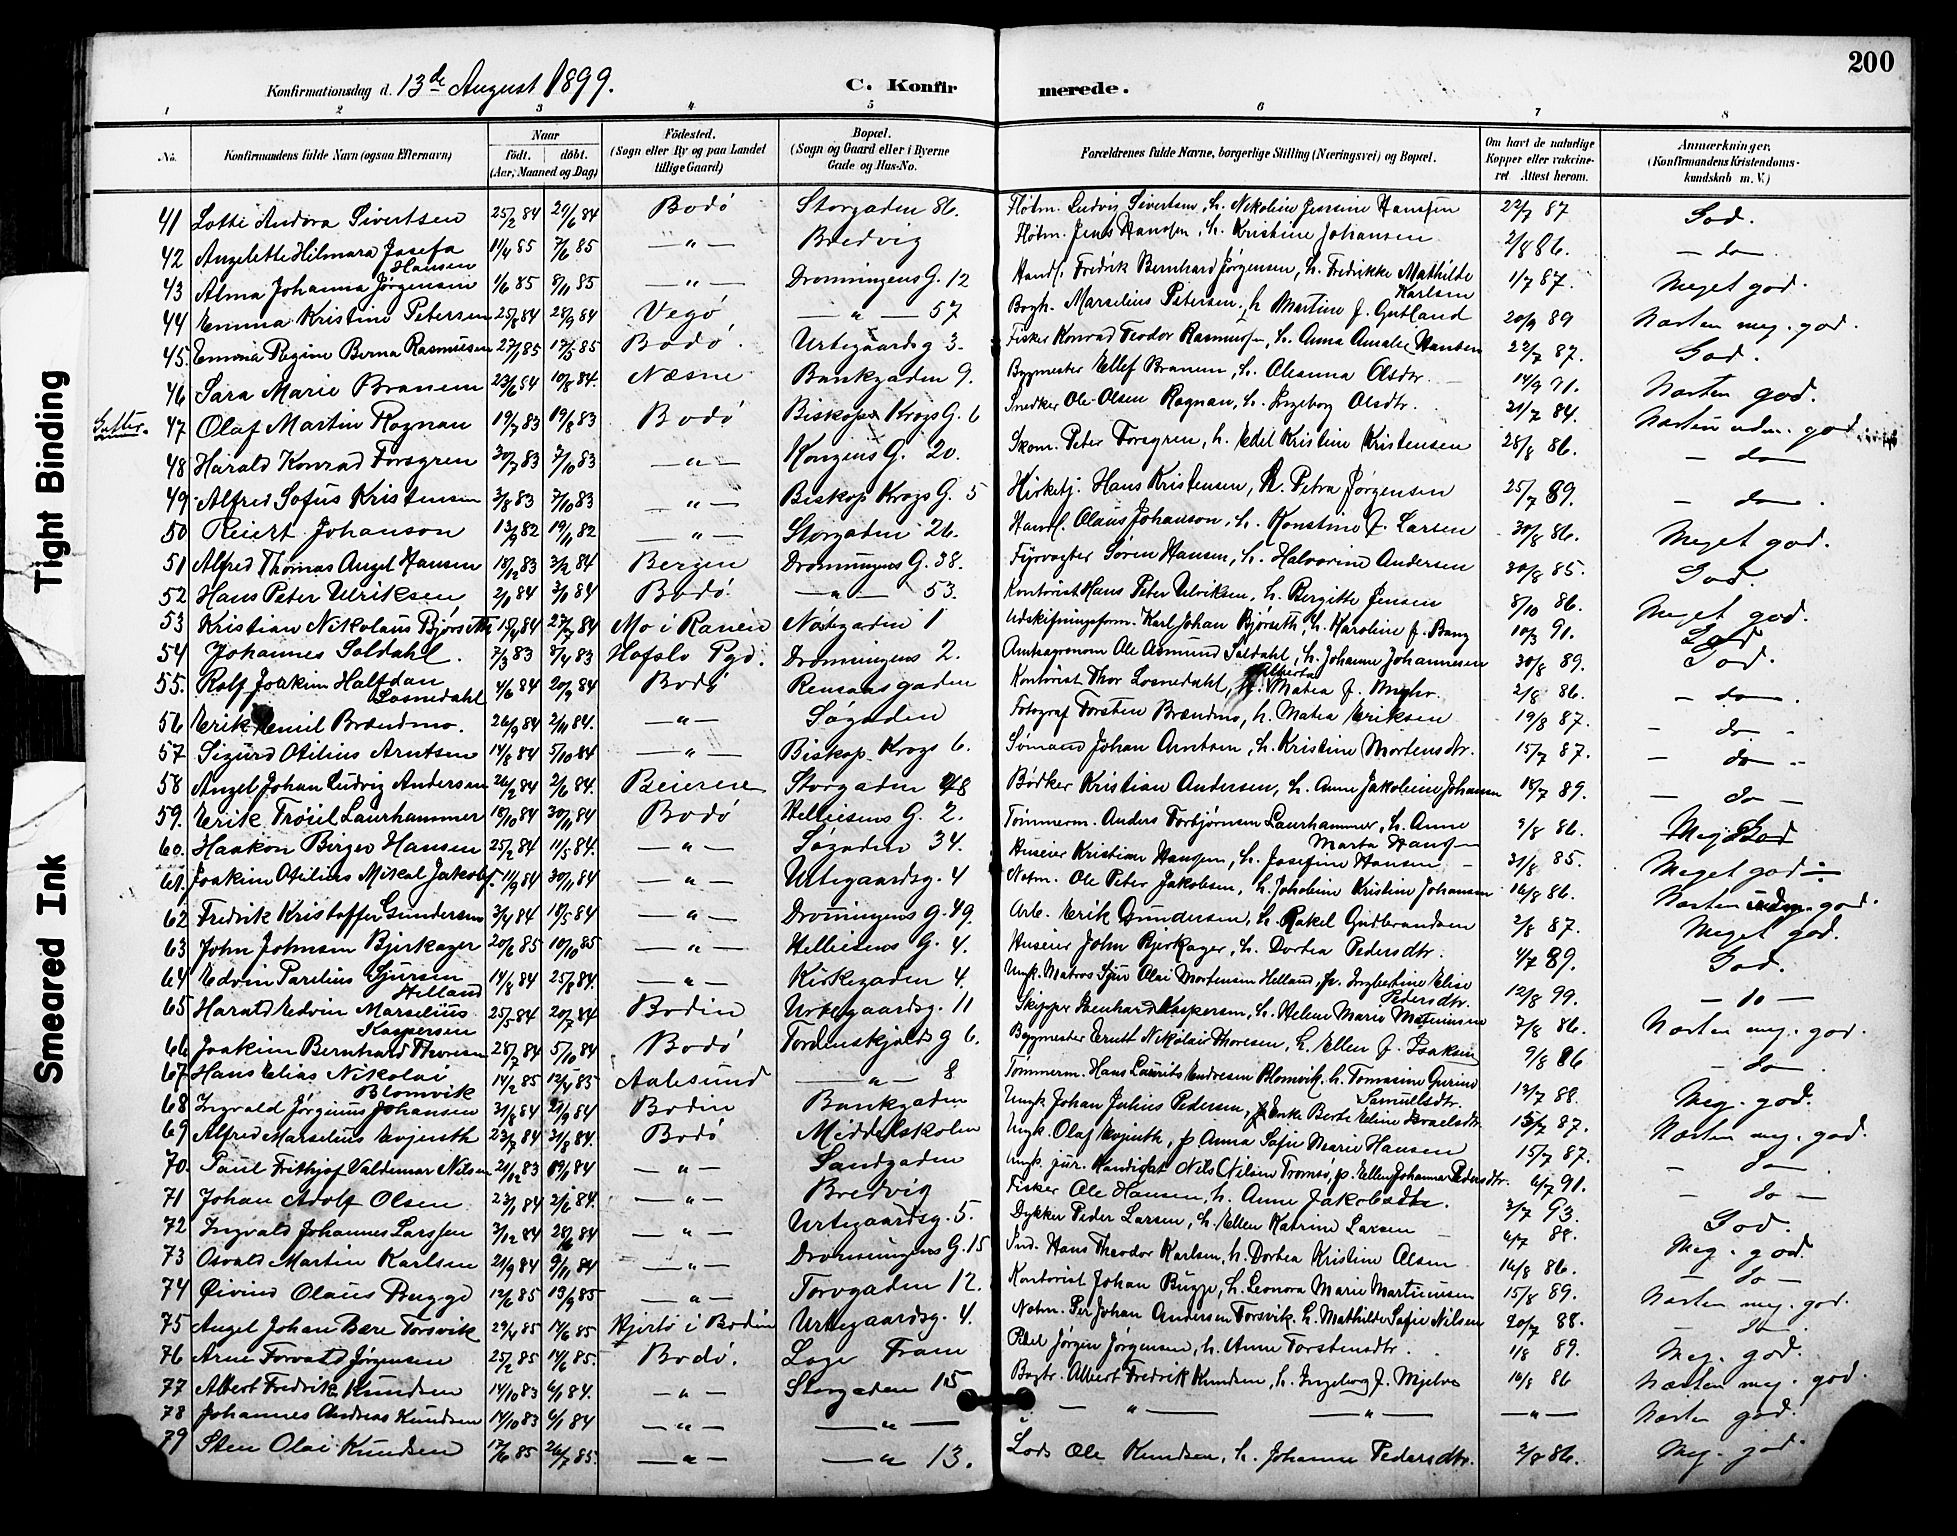 200
Konfirmationsdag d. 13de August 1899.
C. Konfir merede.
1 2 3 4 5 6 7 8
No. Konfirmandens fulde Navn (ogsaa Efternavn) Naar født. døbt. (Aar, Maaned og Dag) Fødested. (Sogn eller By og paa Landet tillige Gaard) Bopæl. (Sogn og Gaard eller i Byerne Gade og Hus-No. Forældrenes fulde Navne, borgerlige Stilling (Næringsvei) og Bopæl. Om havt de naturlige Kopper eller vaccineret Attest herom. Anmærkninger. (Konfirmandens Kristendomskundskab m. V.)
41 Lotte Andora Sivertsen 25/2 84 Bodø Storgaden 86. Fløtm. Ludvig Sivertsen, h. Nekoline Jensine Hanssen 22/7 87 God.
42 Angelette Hilmara Josefa Hansen 11/4 85 7/6 85 — " — Bredvig Fløtm. Jens Hanssen, h. Kristine Johansen 2/8 86. — do.
43 Alma Johanna Jørgensen 1/6 85 8/11 85 — " — Dronningens G. 12 Handl. Fredrik Bernhard Jørgensen, h. Fredrikke Mathilde Karlsen 1/7 87. Meget god.
44 Emma Kristine Petersen 25/8 84 28/9 84 Vegø — " — 57 Bogh. Marselius Petersen, h. Martine f. Gutland 20/9 89 Næsten meg. god.
45. Emma Regine Berna Rasmusen 27/1 85 17/5 85 Bodø. Urtegaardsg 3. Fisker Konrad Teodor Rasmussen, h. Anna Amalie Hansen 22/7 87. God.
46 Sara Marie Branem 23/6 84 10/8 84. Næsne Bankgaden 9. Bygmester Ellef Branem, h. Oleanna Olsdtr. 14/9 91. Næsten god.
47 Olaf Martin Rognan 19/7 83 19/8 83 Bodø Biskop Krogs G. 6 Snedker Ole Olsen Rognan, h. Ingeborg Olsdtr. 21/7 84. Næsten udm. god
48 Harald Konrad Forsgren 30/7 83 7/10 83 — " — Kongens G. 20. Skom. Peter Forsgren, h. Edel Kristine Kristensen 28/8 86. — do —
49 Alfred Sofus Kristensen 3/8 83 7/10 83 — " — Biskop Krogs G. 5 Kirketj. Hans Kristensen, h. Petra Jørgensen 25/7 89. — do.
50 Reiert Johanson 13/9 82 19/11 82 — " — Storgaden 26. Handl. Olaus Johanson, h. Konstine f. Larsen 30/8 86. Meget god.
51 Alfred Thomas Angel Hansen 18/12 83 3/2 84 Bergen Dronningens G. 38. Fyrvogter Søren Hansen, h. Halvorine Andersen 30/8 85. God.
52 Hans Peter Ulriksen 2/1 84 Bodø. — " — 53. Kontorist Hans Peter Ulriksen, h. Bergitte Jensen 8/10 86. Meget god.
53 Kristian Nikolaus Bjørseth 15/4 84 27/7 84 Mo i Ranen Nøtgaden 1 Udskiftningsform. Karl Johan Bjørseth, h. Karoline f. Bang 10/3 91. God
54 Johannes Soldahl. 7/3 83 8/4 83 Hafslo Pgd. Dronningens 2. Amtsagronom Ole Asmund Soldahl, h. Johanne Johannesen 30/8 89. God.
55. Rolf Joakim Halfdan Losnedahl 4/6 84 20/9 84 Bodø Rensaasgaden Kontorist Thor Losnedahl, h. Alberta Matea f. 2/8 86. — do —
56 Erik Emil Brændmo. 26/9 84 2/11 84. — " — Søgaden Fotograf Torsten Brændmo, h. Matea Eriksen 19/8 87. — do —
57 Sigurd Otilius Arntsen 14/8 84 5/10 84 — " — Biskop Krogs 6. Sømand Johan Arntsen, h. Kristine Mortensdtr. 15/7 87. — do —
58 Angel Johan Ludvig Andersen 26/2 84 2/6 84. Beieren Storgaden 48 Bødker Kristian Andersen, h. Anne Jakobine Johansen 18/7 89. — do —
59. Erik Trøiel Laurhammer 18/10 84 30/11 84 Bodø Helliesens G. 2. Tømmerm. Anders Torbjørnsen Laurhammer, h. Anne Marta Hanss 9/8 86. Meg. God
60. Haakon Birger Hansen 25/2 84 11/5 84. — " — Søgaden 34. Huseier Kristian Hanssen, h. Josefine Hansen 31/8 85. Meget god
61. Joakim Otilius Mikal Jakobs. 11/9 84 30/11 84 — " — Urtegaardsg. 4 Notm. Ole Peter Jakobsen, h. Jakobine Kristine Johansen 16/8 86. Næsten udm. god.
62 Fredrik Kristoffer Gundersen 3/4 84 18/5 84 — " — Dronningens G. 49. Arb. Erik Gundersen, h. Rakel Gudbrandsen 2/8 87. Meget god.
63 John Johnsen Bjerkager 20/6 85 10/10 85 — " — Helliesens G. 4. Huseier John Bjerkager, h. Dortea Pedersdtr. 4/7 89. God.
64 Edvin Parelius Sjursen Helland 14/8 84 25/8 84. — " — Kirkegaden 4. Ungk. Matros Sjur Olai Mortensen Helland, p. Ingbertine Elise Pedersdtr. 12/8 99. — do —
65 Harald Edvin Marselius Kaspersen 25/5 84 20/7 84 Bodin Urtegaardsg. 11 Skipper Meenhard Kaspersen, h. Helene Marie 7/8 86. Næsten meg. god.
66 Joakim Bernhard Thoresen 28/7 84 5/10 84 Bodø Tordenskjolds g 6. Bygmester Ernst Nikolai Thoresen, h. Ellen f. Isaksen 9/8 86 — do —
67 Hans Elias Nikolai Blomvik 14/2 85 12/4 85 Aalesund — " — 8 Tømmerm. Hans Laurits Endresen Blomvik, h. Tomasine Gurine Samuelsdtr. 12/7 88. Meg. god.
68 Ingvald Jørginus Johansen 31/8 84 21/9 84 Bodin Bankgaden Ungk Johan Julius Pedersen, Enke Berte Eline Israelsdtr 15/7 87. Næsten meg. god.
69 Alfred Marselius Evjenth 23/7 84 31/8 84. Bodø Middelskolen Ungk. Olaf Evjenth, p Anna Sofie Marie Hansen 15/7 87. — do —
70. Paul Frithjof Valdemar Nilsen 21/12 83 84 — " — Sandgaden Ungk. jur. Kandidat Nils Nilsen Tromsø, p. Ellen Johanna Pedersdtr. 6/7 91. — do —
71 Johan Adolf Olsen 23/1 84 2/6 84. — " — Bredvig Fisker Ole Hansen, h. Anne Jakobsdtr. 3/7 93. God.
72 Ingvald Johannes Larssen 3/12 84 28/6 84 — " — Urtegaardsg. 5. Dykker Peder Larsen, h. Ellen Katrine Larsen 6/7 88. Meg. god.
73 Osvald Martin Karlsen 21/9 84 9/11 84 — " — Dronningens G. 15 Snd. Hans Theodor Karlsen, h. Dortea Kristine Olsen 16/8 86. — do —
74 Øivind Olaus Bugge 12/6 85 13/9 85 — " — Torvgaden 12. Kontorist Johan Bugge, h. Leonora Marie Martinusen 15/8 89. Næsten meg. god.
75 Angel Johan Bære Torsvik 29/4 85 14/6 85 Hjertø i Bodin Urtegaardsg. 4. Notm. Per Johan Andersen Torsvik, h. Mathilde Sofie Nilsen 20/7 88. — do —
76 Arne Torvald Jørgensen 25/2 85 14/6 85. Bodø. Loge Fram Pedel Jørgen Jørgensen, h. Anne Torstensdtr. 1/8 89. Meg. god.
77 Albert Fredrik Knudsen 14/10 83 6/1 84. — " — Storgaden 15 Bogtr. Albert Fredrik Knudsen, h. Ingeborg f. Mjelve 16/8 86 Næsten meg. god.
78 Johannes Andreas Knudsen 14/10 83 6/1 84 — " — — " — — " — — " — — " — Næsten god.
79 Sten Olai Knudsen 17/6 85 26/7 85. — " — — " — 13. Lods Ole Knudsen, h. Johanne Pedersdtr. 2/8 86. Meg. god.
Tight Binding
Smeared Ink